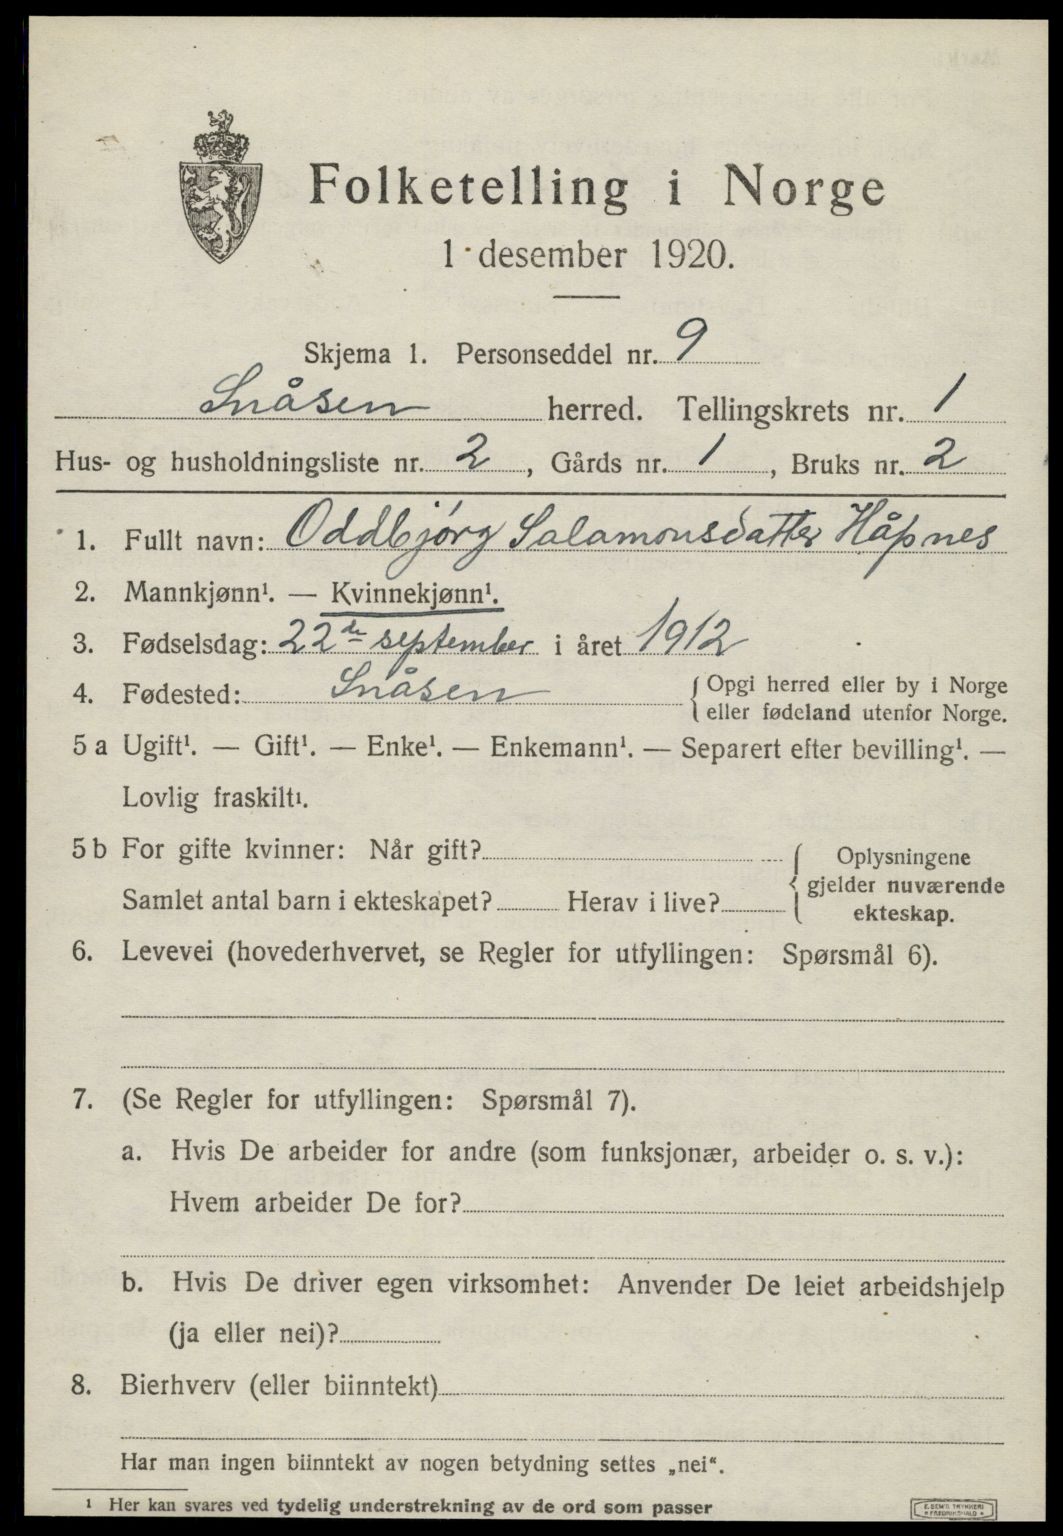 Folketelling i Norge
1 desember 1920.
Skjema 1. Personseddel nr. 9
Snåsen herred. Tellingskrets nr. 1
Hus- og husholdningsliste nr. 2, Gårds nr. 1, Bruks nr. 2
1. Fullt navn: Oddbjørg Salamonsdatter Håpnes
2. Mannkjønn¹. — Kvinnekjønn¹.
3. Fødselsdag: 22de september i året 1912
4. Fødested: Snåsen { Opgi herred eller by i Norge
eller fødeland utenfor Norge.
5 a Ugift¹. — Gift¹. — Enke¹. — Enkemann¹. — Separert efter bevilling¹. —
Lovlig fraskilt¹.
5 b For gifte kvinner: Når gift? { Oplysningene
gjelder nuværende
Samlet antal barn i ekteskapet? Herav i live? ekteskap.
6. Levevei (hovederhvervet, se Regler for utfyllingen: Spørsmål 6).
7. (Se Regler for utfyllingen: Spørsmål 7).
a. Hvis De arbeider for andre (som funksjonær, arbeider o. s. v.):
Hvem arbeider De for?
b. Hvis De driver egen virksomhet: Anvender De leiet arbeidshjelp
(ja eller nei)?
8. Bierhverv (eller biinntekt)
Har man ingen biinntekt av nogen betydning settes „nei“.
¹ Her kan svares ved tydelig understrekning av de ord som passer